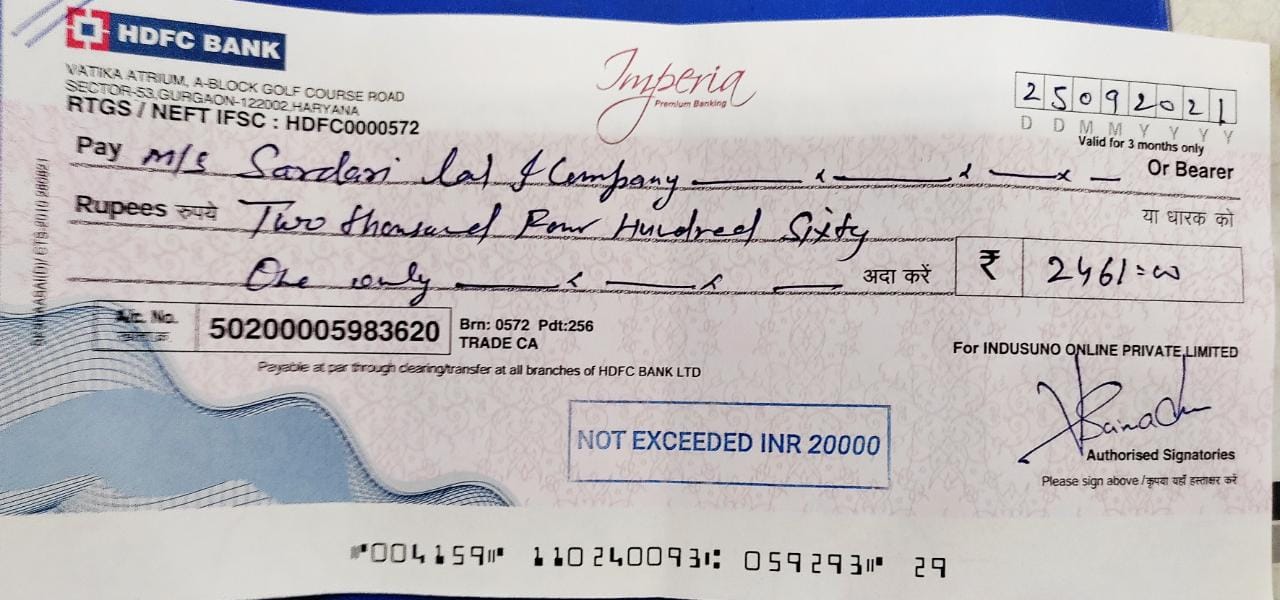 HDFC BANK
VATIKA ATRIUM, A-BLOCK GOLF COURSE ROAD
SECTOR-53,GURGAON-122002,HARYANA
RTGS / NEFT IFSC : HDFC0000572
Imperia
Premium Banking
25092021
D D M M Y Y Y Y
Valid for 3 months only
Pay M/S Sardari Lal & Company Or Bearer
Rupees रुपये Two thousand Four Hundred Sixty या धारक को
One only अदा करें ₹ 2461=00
A/c. No. 50200005983620 Brn: 0572 Pdt:256
TRADE CA
Payable at par through clearing/transfer at all branches of HDFC BANK LTD
For INDUSUNO ONLINE PRIVATE LIMITED
NOT EXCEEDED INR 20000
Authorised Signatories
Please sign above / कृपया यहाँ हस्ताक्षर करें
⑈004159⑈ 110240093⑆ 059293⑈ 29